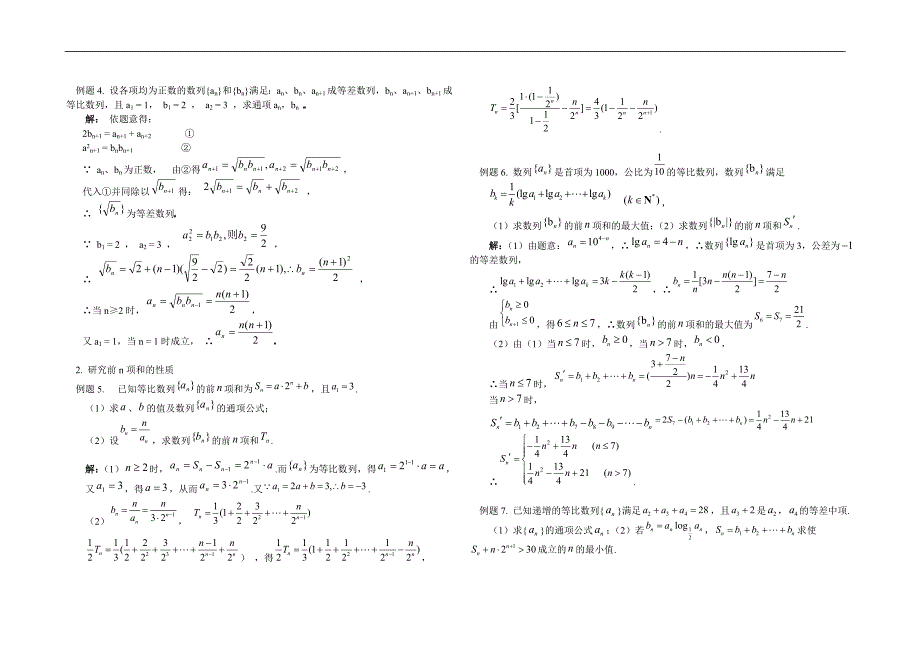 例题 4. 设各项均为正数的数列{aₙ}和{bₙ}满足：aₙ、bₙ、aₙ₊₁成等差数列，bₙ、aₙ₊₁、bₙ₊₁成
等比数列，且 a₁ = 1， b₁ = 2 ， a₂ = 3 ，求通项 aₙ，bₙ 。
解： 依题意得：
2bₙ₊₁ = aₙ₊₁ + aₙ₊₂ ①
a²ₙ₊₁ = bₙbₙ₊₁ ②
∵ aₙ、bₙ为正数， 由②得 $a_{n+1}=\sqrt{b_nb_{n+1}},a_{n+2}=\sqrt{b_{n+1}b_{n+2}}$ ，
代入①并同除以 $\sqrt{b_{n+1}}$ 得： $2\sqrt{b_{n+1}}=\sqrt{b_n}+\sqrt{b_{n+2}}$ ，
∴ $\{\sqrt{b_n}\}$ 为等差数列。
∵ b₁ = 2 ， a₂ = 3 ， $a_2^2=b_1b_2,则b_2=\frac{9}{2}$ ，
∴ $\sqrt{b_n}=\sqrt{2}+(n-1)(\sqrt{\frac{9}{2}}-\sqrt{2})=\frac{\sqrt{2}}{2}(n+1),\therefore b_n=\frac{(n+1)^2}{2}$ ，
∴当 n≥2 时， $a_n=\sqrt{b_nb_{n-1}}=\frac{n(n+1)}{2}$ ，
又 a₁ = 1，当 n = 1 时成立， ∴ $a_n=\frac{n(n+1)}{2}$ 。
2. 研究前 n 项和的性质
例题 5. 已知等比数列 $\{a_n\}$ 的前 $n$ 项和为 $S_n=a\cdot2^n+b$ ，且 $a_1=3$ .
（1）求 $a$ 、$b$ 的值及数列 $\{a_n\}$ 的通项公式；
（2）设 $b_n=\frac{n}{a_n}$ ，求数列 $\{b_n\}$ 的前 $n$ 项和 $T_n$ .
解：（1） $n\ge2$ 时， $a_n=S_n-S_{n-1}=2^{n-1}\cdot a$ .而 $\{a_n\}$ 为等比数列，得 $a_1=2^{1-1}\cdot a=a$ ，
又 $a_1=3$ ，得 $a=3$ ，从而 $a_n=3\cdot2^{n-1}$ .又 $\because a_1=2a+b=3,\therefore b=-3$ .
（2） $b_n=\frac{n}{a_n}=\frac{n}{3\cdot2^{n-1}}$ ， $T_n=\frac{1}{3}(1+\frac{2}{2}+\frac{3}{2^2}+\cdots+\frac{n}{2^{n-1}})$
$\frac{1}{2}T_n=\frac{1}{3}(\frac{1}{2}+\frac{2}{2^2}+\frac{3}{2^3}+\cdots+\frac{n-1}{2^{n-1}}+\frac{n}{2^n}$ ） ，得 $\frac{1}{2}T_n=\frac{1}{3}(1+\frac{1}{2}+\frac{1}{2^2}+\cdots+\frac{1}{2^{n-1}}-\frac{n}{2^n})$ ，
$T_n=\frac{2}{3}[\frac{1\cdot(1-\frac{1}{2^n})}{1-\frac{1}{2}}-\frac{n}{2^n}]=\frac{4}{3}(1-\frac{1}{2^n}-\frac{n}{2^{n+1}})$ .
例题 6. 数列 $\{a_n\}$ 是首项为 1000，公比为 $\frac{1}{10}$ 的等比数列，数列 $\{b_n\}$ 满足
$b_k=\frac{1}{k}(\lg a_1+\lg a_2+\cdots+\lg a_k)$ $(k\in N^*)$ ，
（1）求数列 $\{b_n\}$ 的前 $n$ 项和的最大值；（2）求数列 $\{|b_n|\}$ 的前 $n$ 项和 $S_n'$ .
解：（1）由题意： $a_n=10^{4-n}$ ，∴ $\lg a_n=4-n$ ，∴数列 $\{\lg a_n\}$ 是首项为 3，公差为 $-1$
的等差数列，
∴ $\lg a_1+\lg a_2+\cdots+\lg a_k=3k-\frac{k(k-1)}{2}$ ，∴ $b_n=\frac{1}{n}[3n-\frac{n(n-1)}{2}]=\frac{7-n}{2}$
由 $\begin{cases}b_n\ge0\\b_{n+1}\le0\end{cases}$ ，得 $6\le n\le7$ ，∴数列 $\{b_n\}$ 的前 $n$ 项和的最大值为 $S_6=S_7=\frac{21}{2}$ .
（2）由（1）当 $n\le7$ 时， $b_n\ge0$ ，当 $n>7$ 时， $b_n<0$ ，
∴当 $n\le7$ 时， $S_n'=b_1+b_2+\cdots+b_n=(\frac{3+\frac{7-n}{2}}{2})n=-\frac{1}{4}n^2+\frac{13}{4}n$
当 $n>7$ 时，
$S_n'=b_1+b_2+\cdots+b_7-b_8-b_9-\cdots-b_n=2S_7-(b_1+b_2+\cdots+b_n)=\frac{1}{4}n^2-\frac{13}{4}n+21$
∴ $S_n'=\begin{cases}-\frac{1}{4}n^2+\frac{13}{4}n & (n\le7)\\\frac{1}{4}n^2-\frac{13}{4}n+21 & (n>7)\end{cases}$ .
例题 7. 已知递增的等比数列{ $a_n$ }满足 $a_2+a_3+a_4=28$ ，且 $a_3+2$ 是 $a_2$ ，$a_4$ 的等差中项.
（1）求{ $a_n$ }的通项公式 $a_n$ ；（2）若 $b_n=a_n\log_{\frac{1}{2}}a_n$ ， $S_n=b_1+b_2+\cdots+b_n$ 求使
$S_n+n\cdot2^{n+1}>30$ 成立的 $n$ 的最小值.